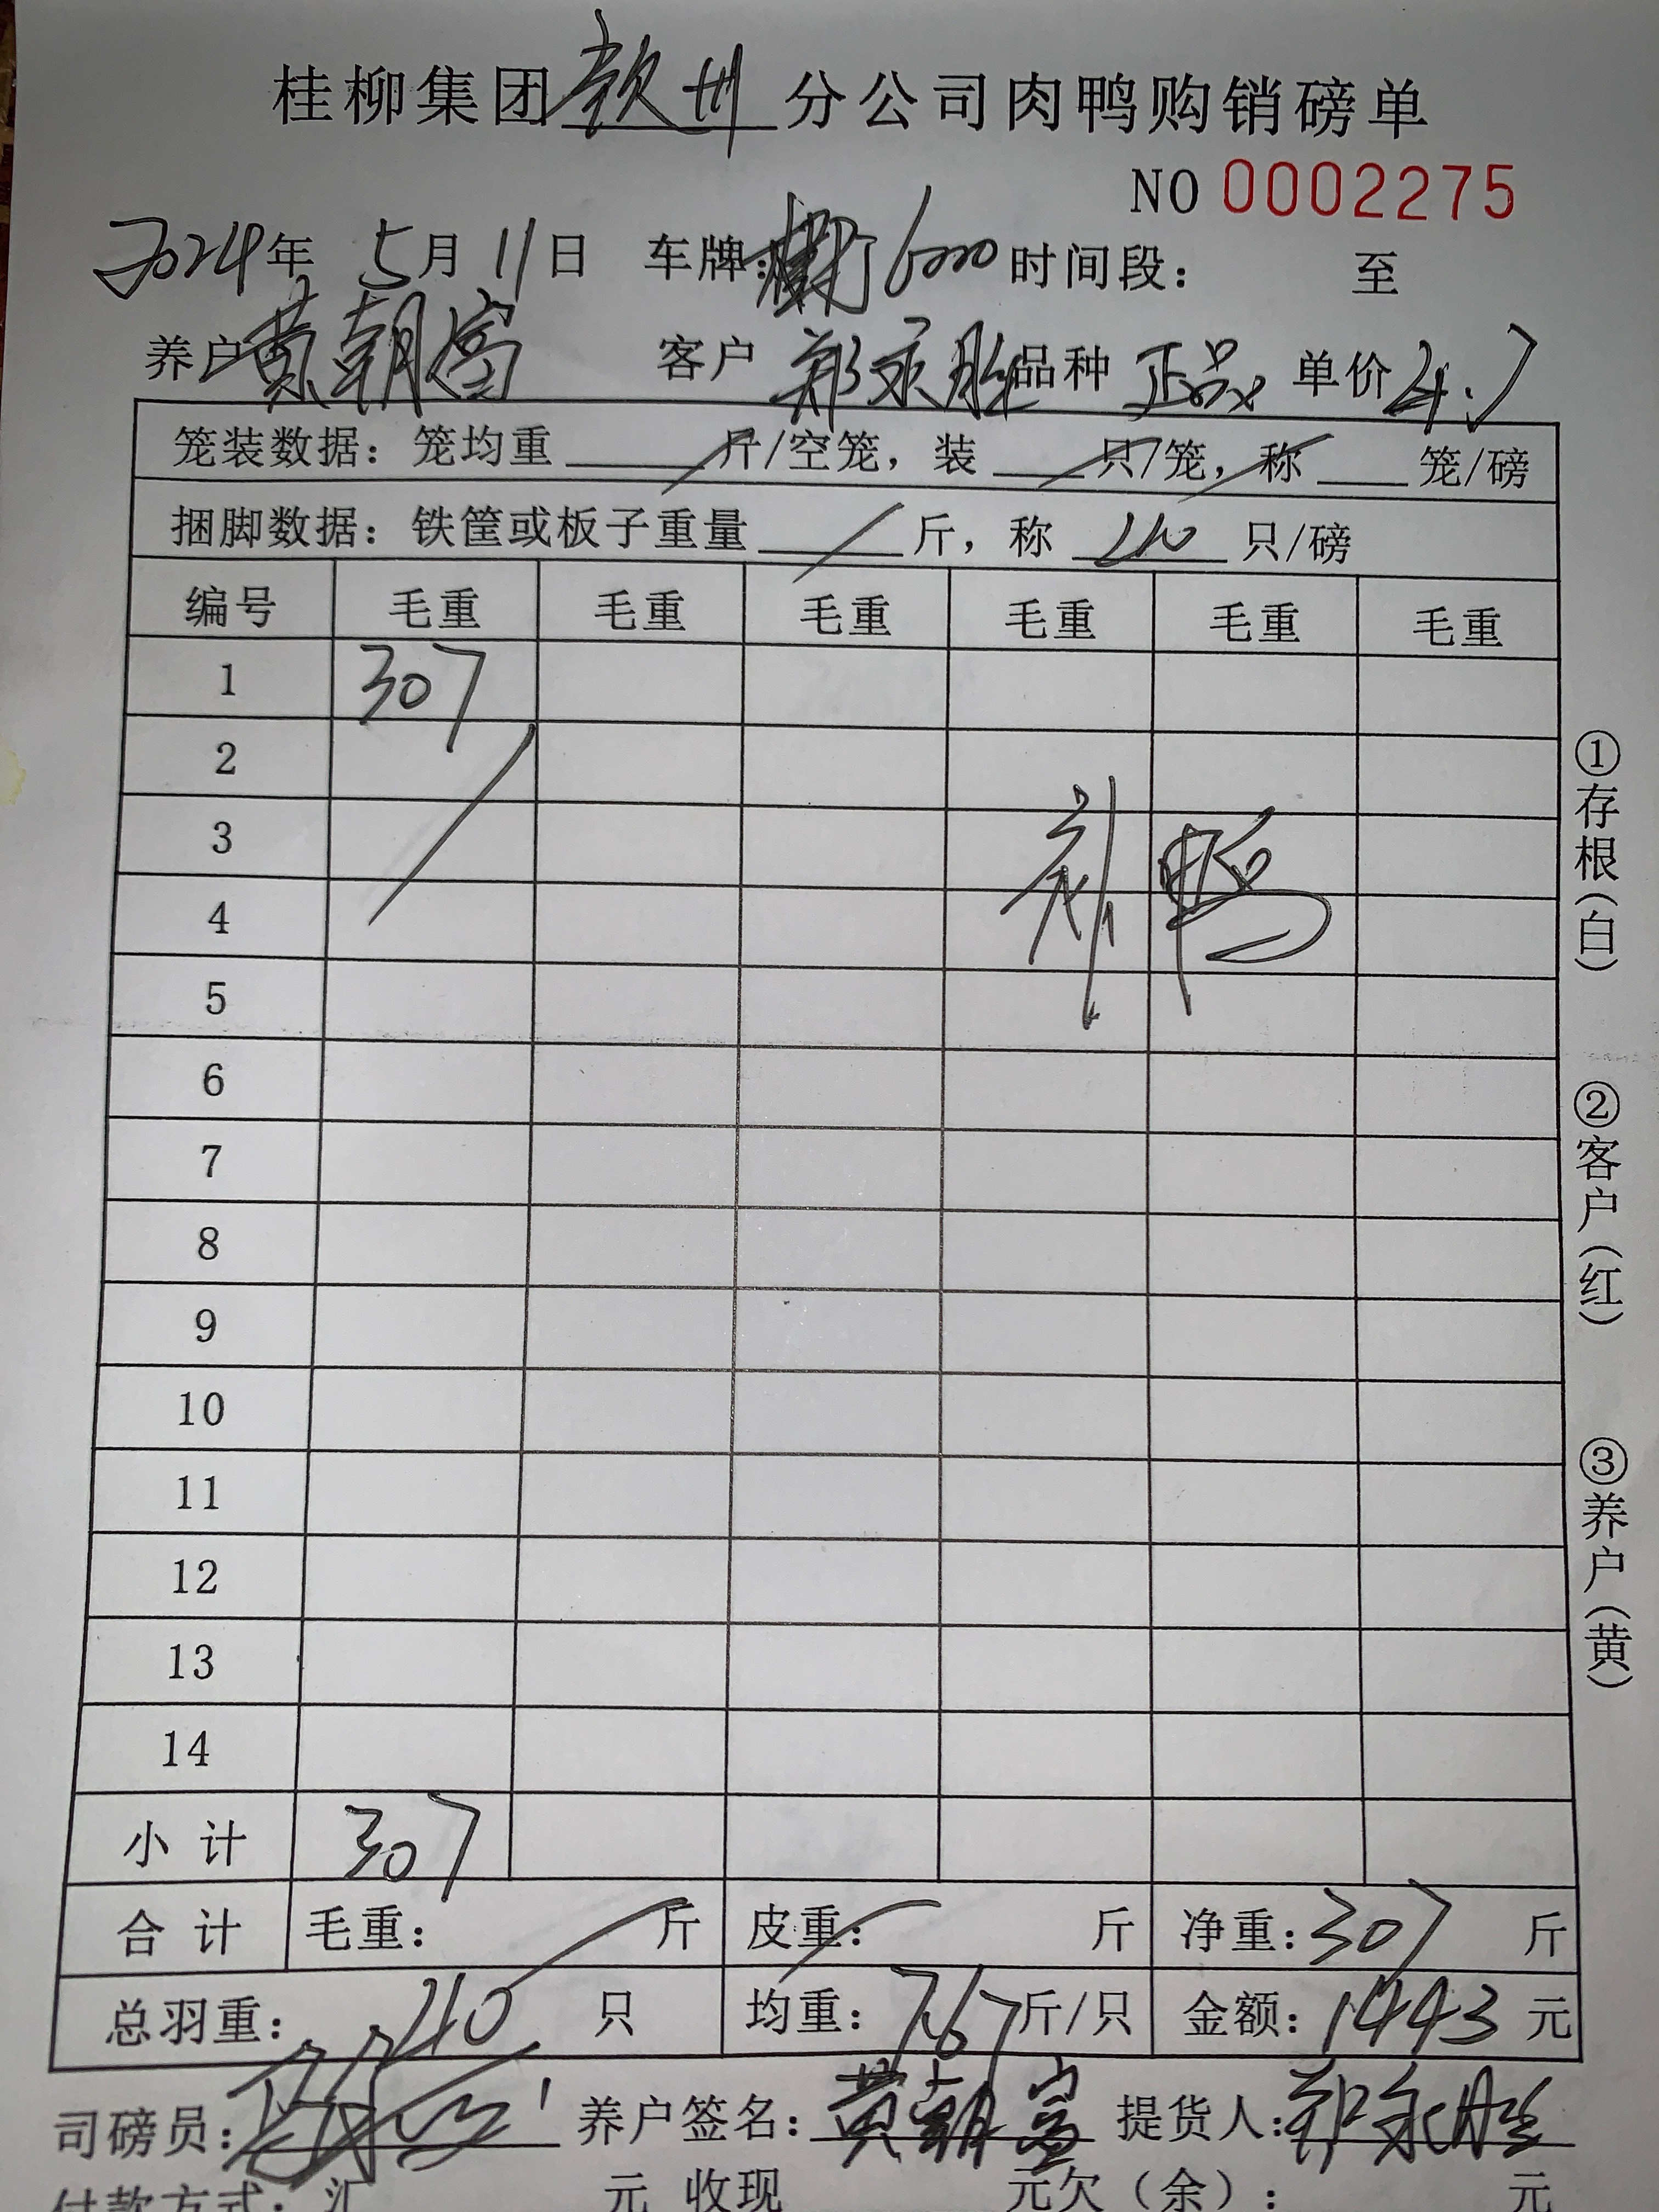 桂柳集团钦州分公司肉鸭购销磅单
NO 0002275
2024年 5月11日 车牌: 6000 时间段: 至
养户 黄朝富 客户 郑永胜 品种 正品 单价 4.7
笼装数据: 笼均重 斤/空笼, 装 只/笼, 称 笼/磅
捆脚数据: 铁筐或板子重量 斤, 称 40 只/磅
编号 毛重 毛重 毛重 毛重 毛重 毛重
1 307
2
3
补鸭
4
5
6
7
8
9
10
11
12
13
14
小计 307
合计 毛重: 斤 皮重: 斤 净重: 307 斤
总羽重: 40 只 均重: 7.67 斤/只 金额: 1443 元
司磅员: 养户签名: 黄朝富 提货人: 郑永胜
付款方式: 汇 元 收现 元欠(余): 元
①存根(白)
②客户(红)
③养户(黄)